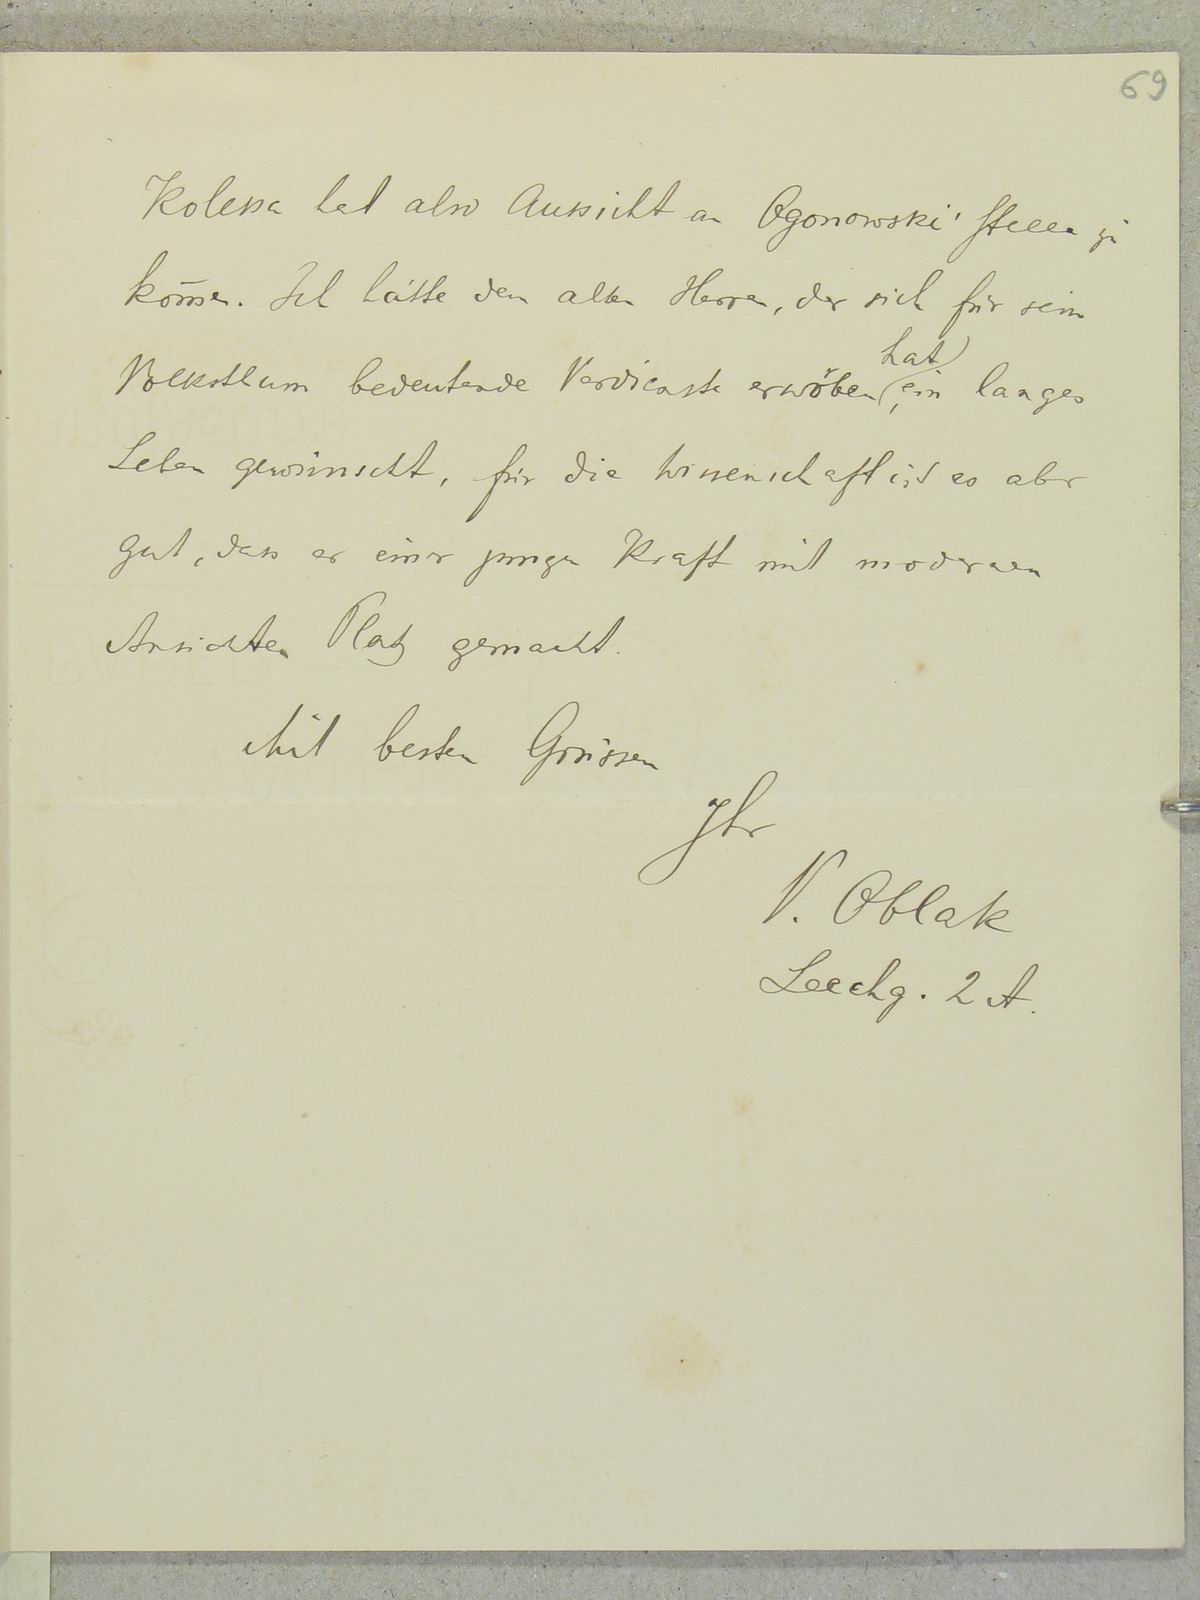 69
Kolessa hat also Aussicht an Ogonowski' Stelle zu
kom̄en. Ich hätte dem alten Herren, der sich für sein
Volksthum bedeutende Verdienste erworben hat, ein langes
Leben gewünscht, für die Wissenschaft ist es aber
gut, dass er einer jungen Kraft mit modernen
Ansichten Platz gemacht.
Mit besten Grüssen
Ihr
V. Oblak
Leechg. 2 A.